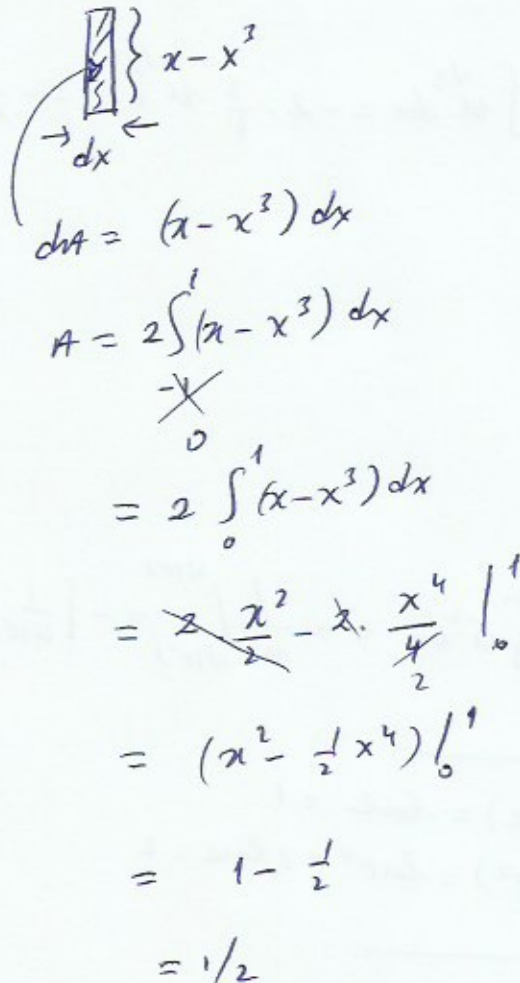 x - x³
dx
dA = (x - x³) dx
A = 2∫(x - x³) dx
1
-1
0
= 2 ∫₀¹ (x - x³) dx
= 2 · x²/2 - 2 · x⁴/4 |₀¹
2
= (x² - 1/2 x⁴) |₀¹
= 1 - 1/2
= 1/2